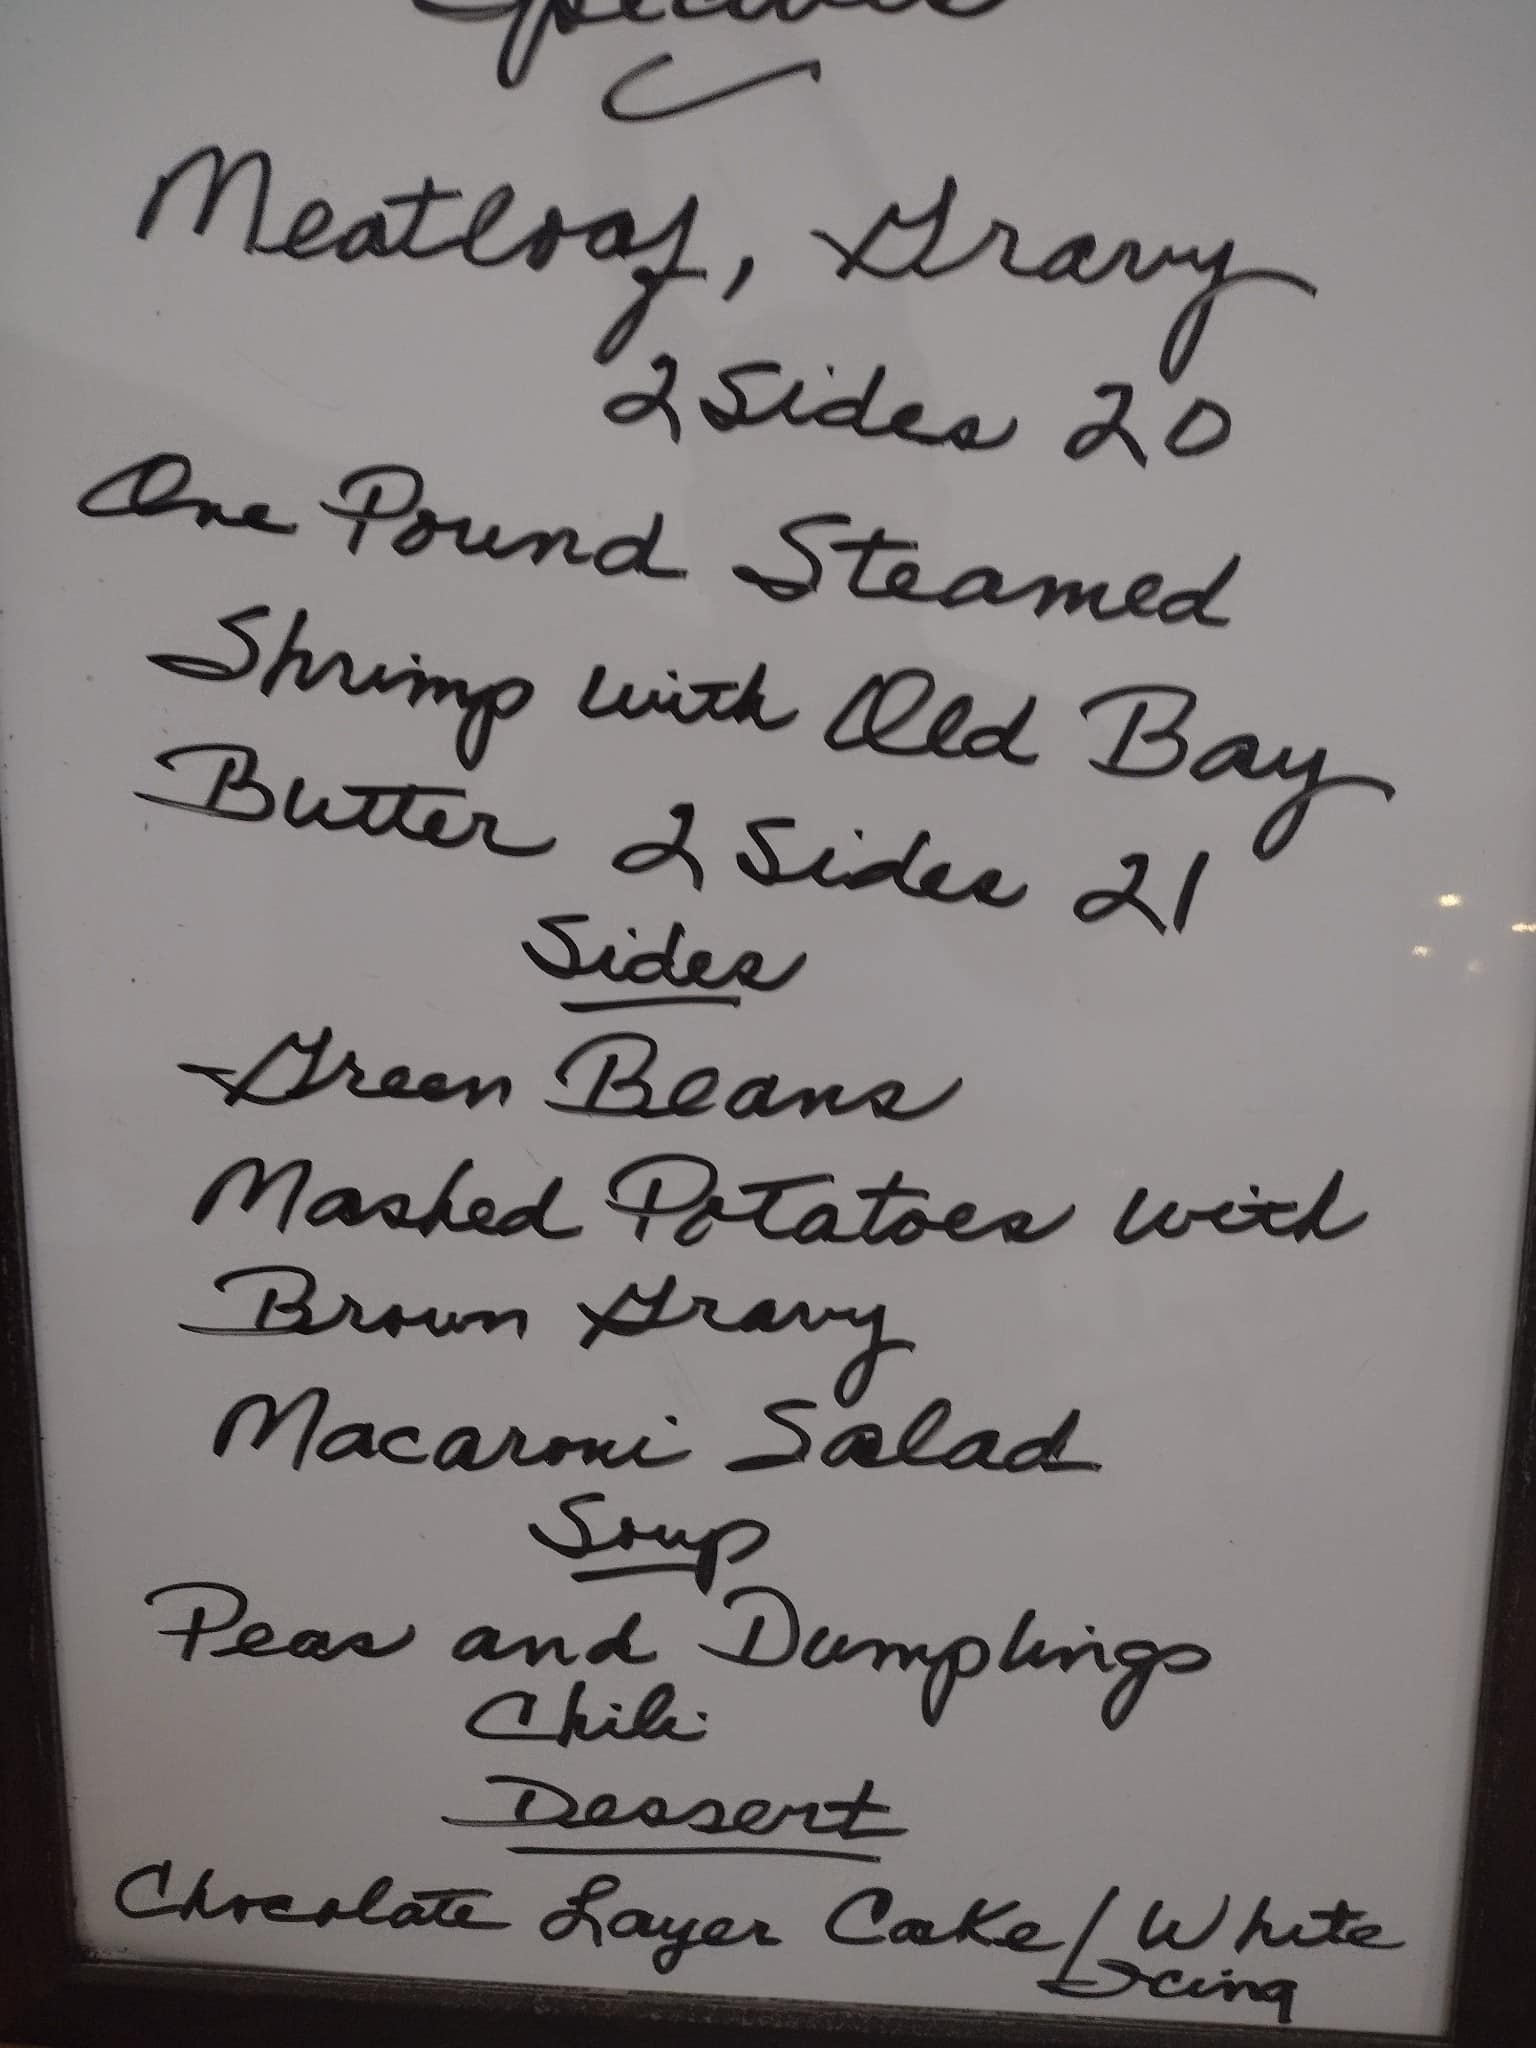 Specials
Meatloaf, Gravy
2 Sides 20
One Pound Steamed
Shrimp with Old Bay
Butter 2 Sides 21
Sides
Green Beans
Mashed Potatoes with
Brown Gravy
Macaroni Salad
Soup
Peas and Dumplings
Chili
Dessert
Chocolate Layer Cake/White
Icing